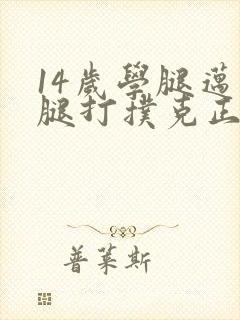 14歲學腿邁
腿打撲克正
普萊斯